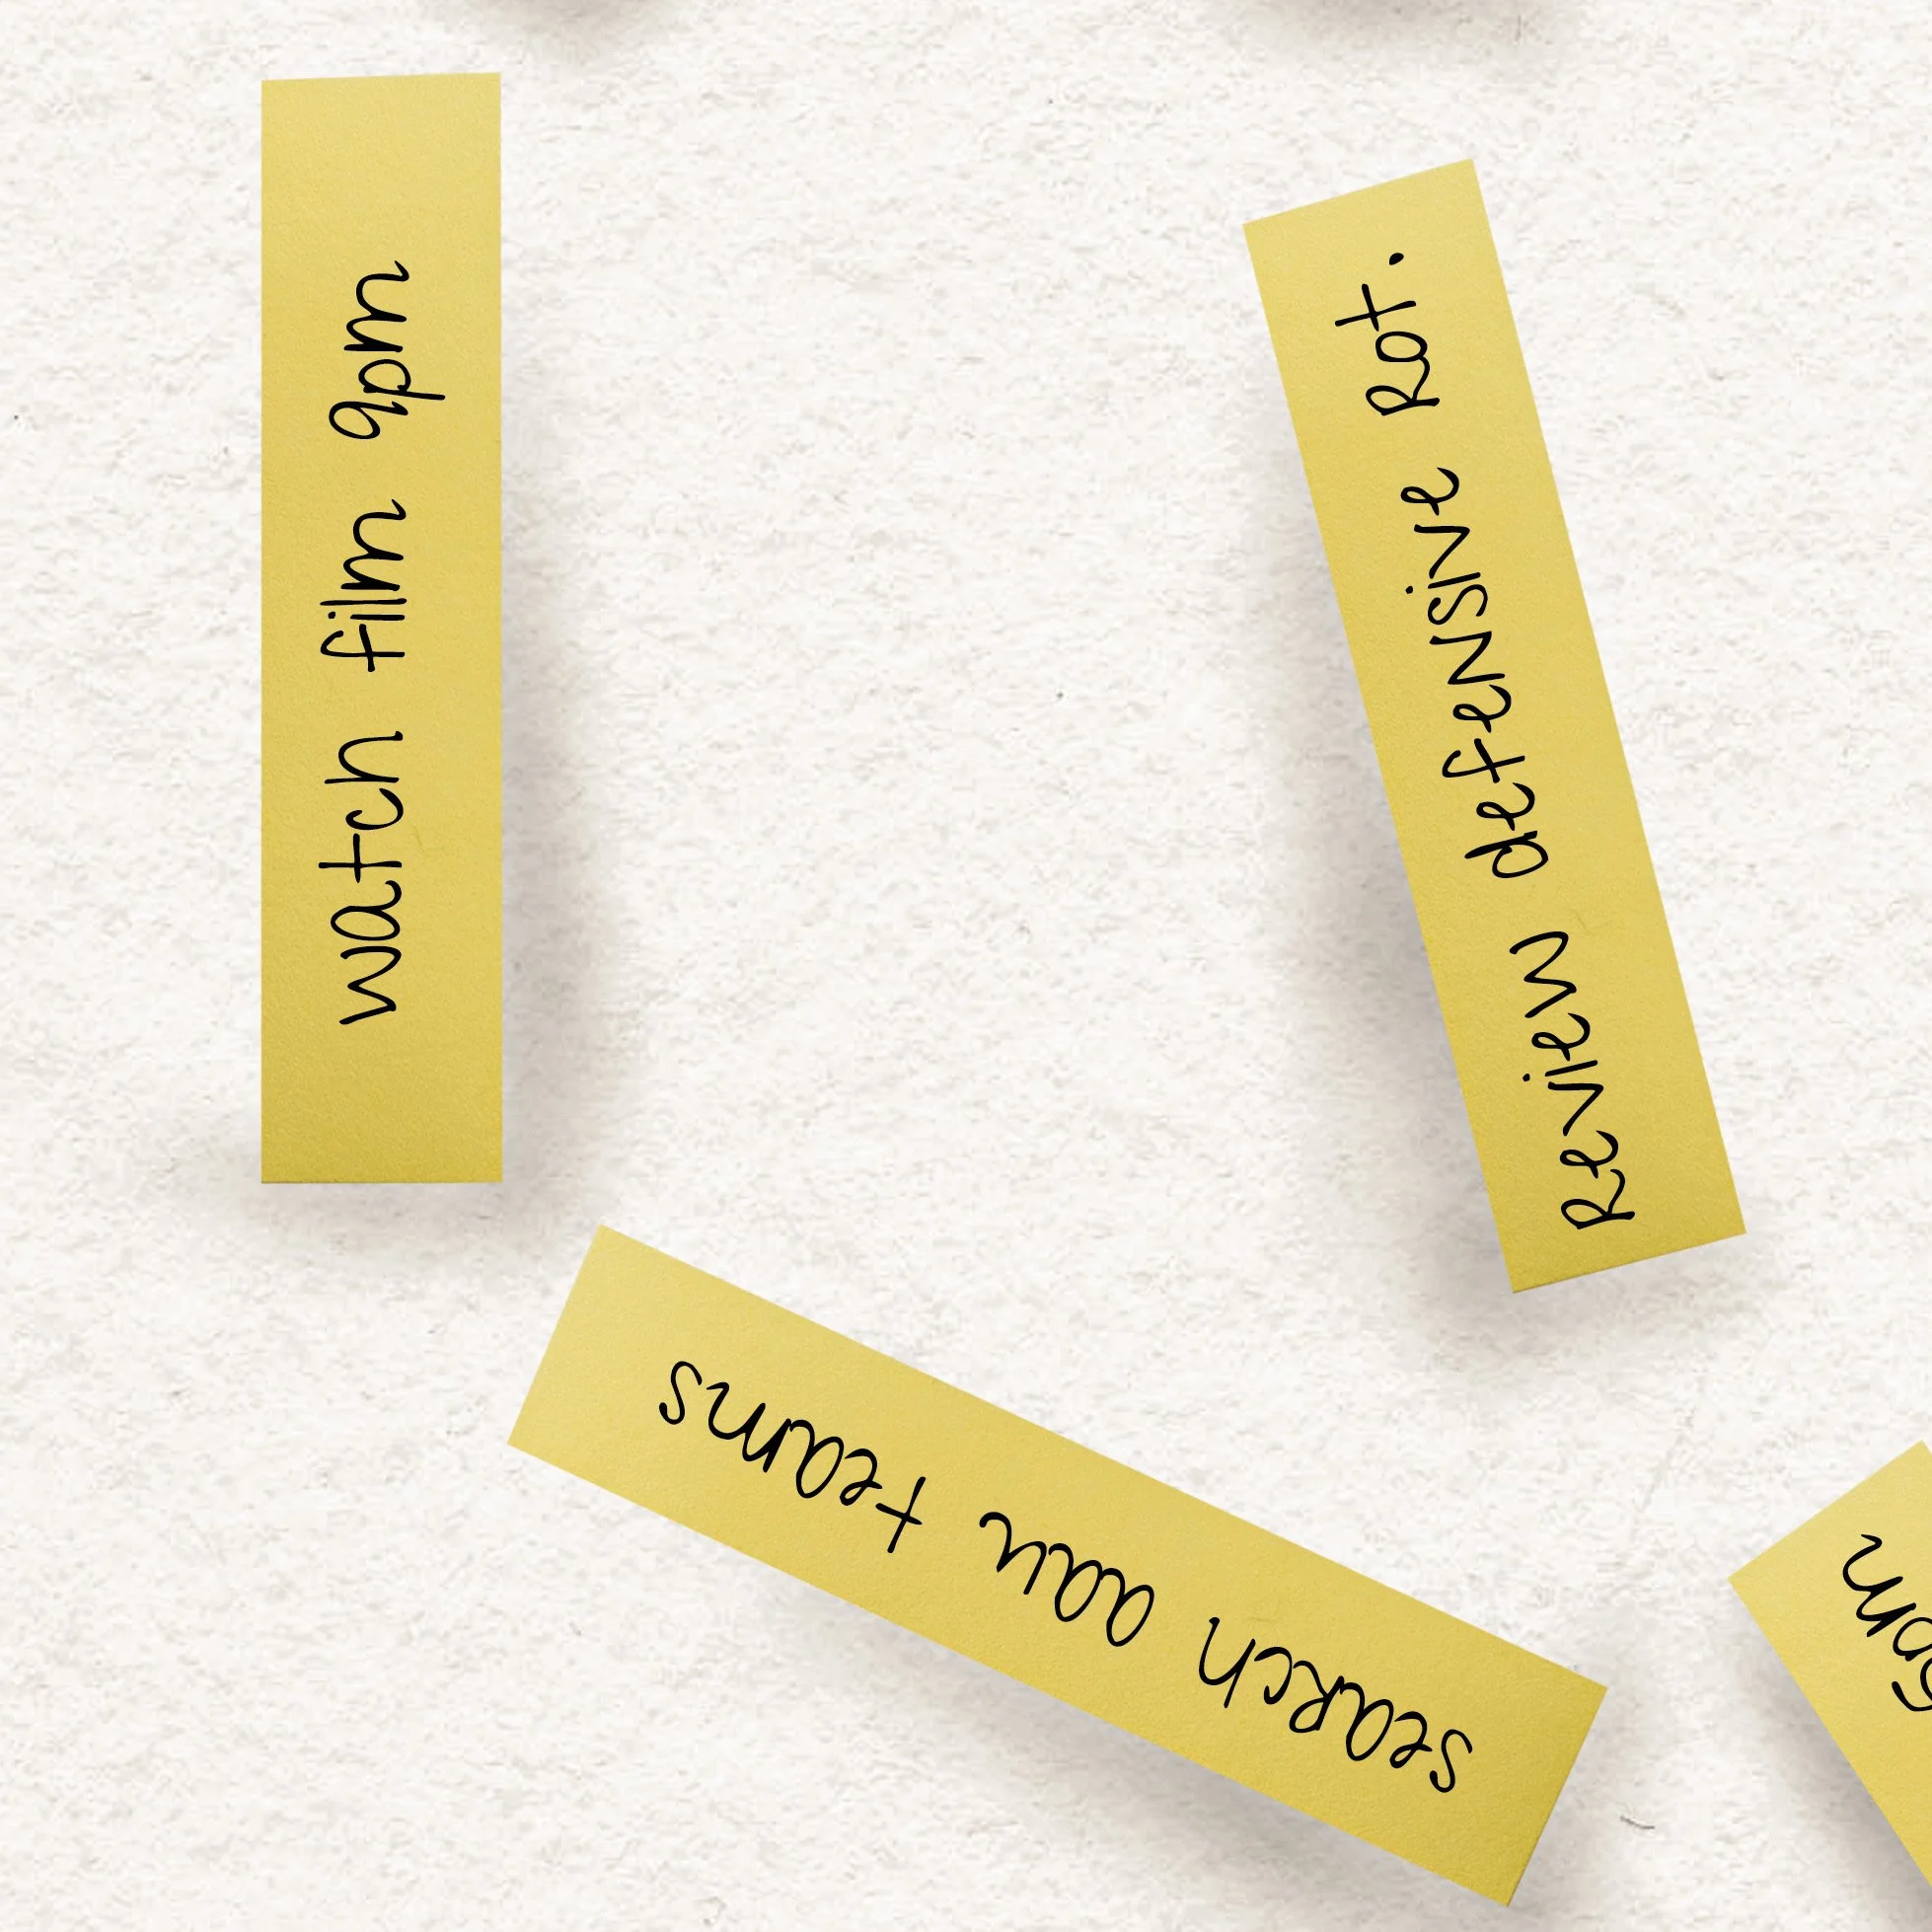 watch film 9pm
Review defensive Rot.
search aau teams